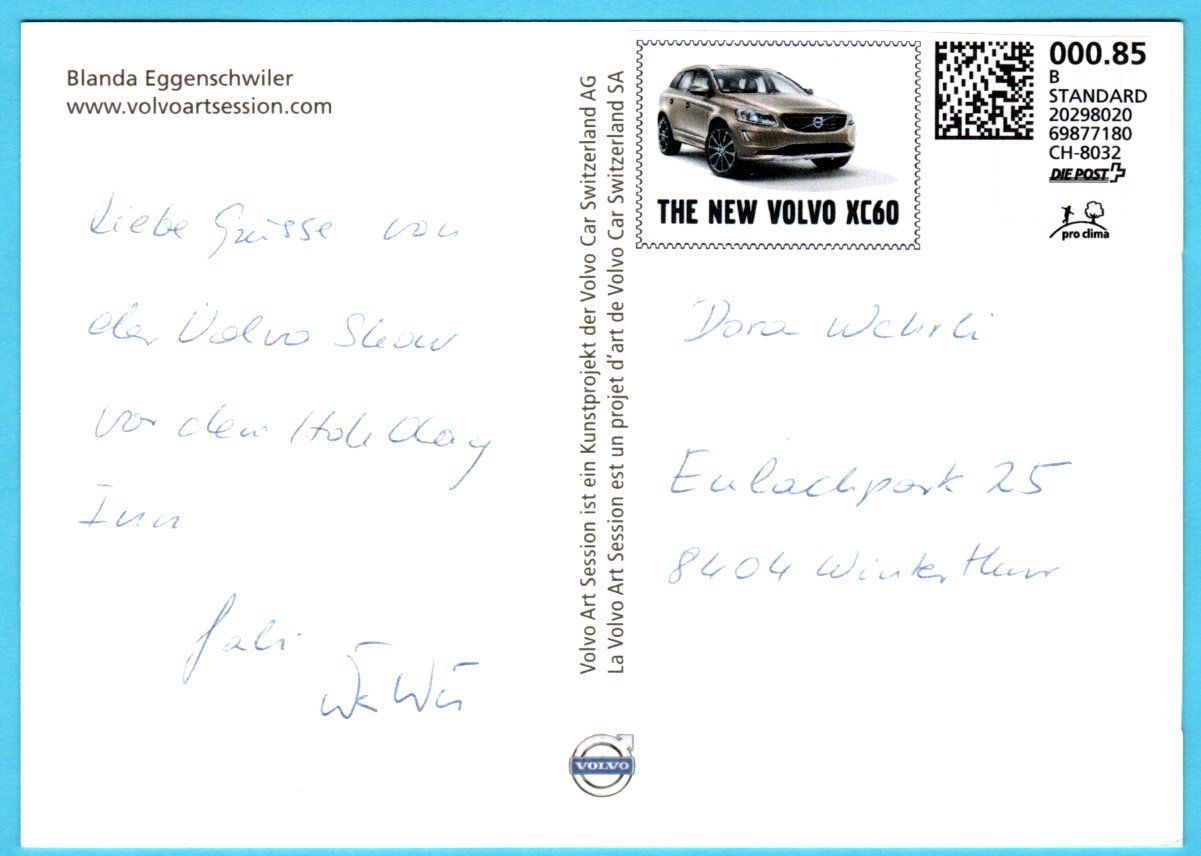 Blanda Eggenschwiler
www.volvoartsession.com
Liebe Grüsse von
der Volvo Show
vor dem Holiday
Inn
Gabi
Volvo Art Session ist ein Kunstprojekt der Volvo Car Switzerland AG
La Volvo Art Session est un projet d'art de Volvo Car Switzerland SA
THE NEW VOLVO XC60
000.85
B
STANDARD
20298020
69877180
CH-8032
DIE POST
pro clima
Dora Wehrli
Eulachpark 25
8404 Winterthur
VOLVO